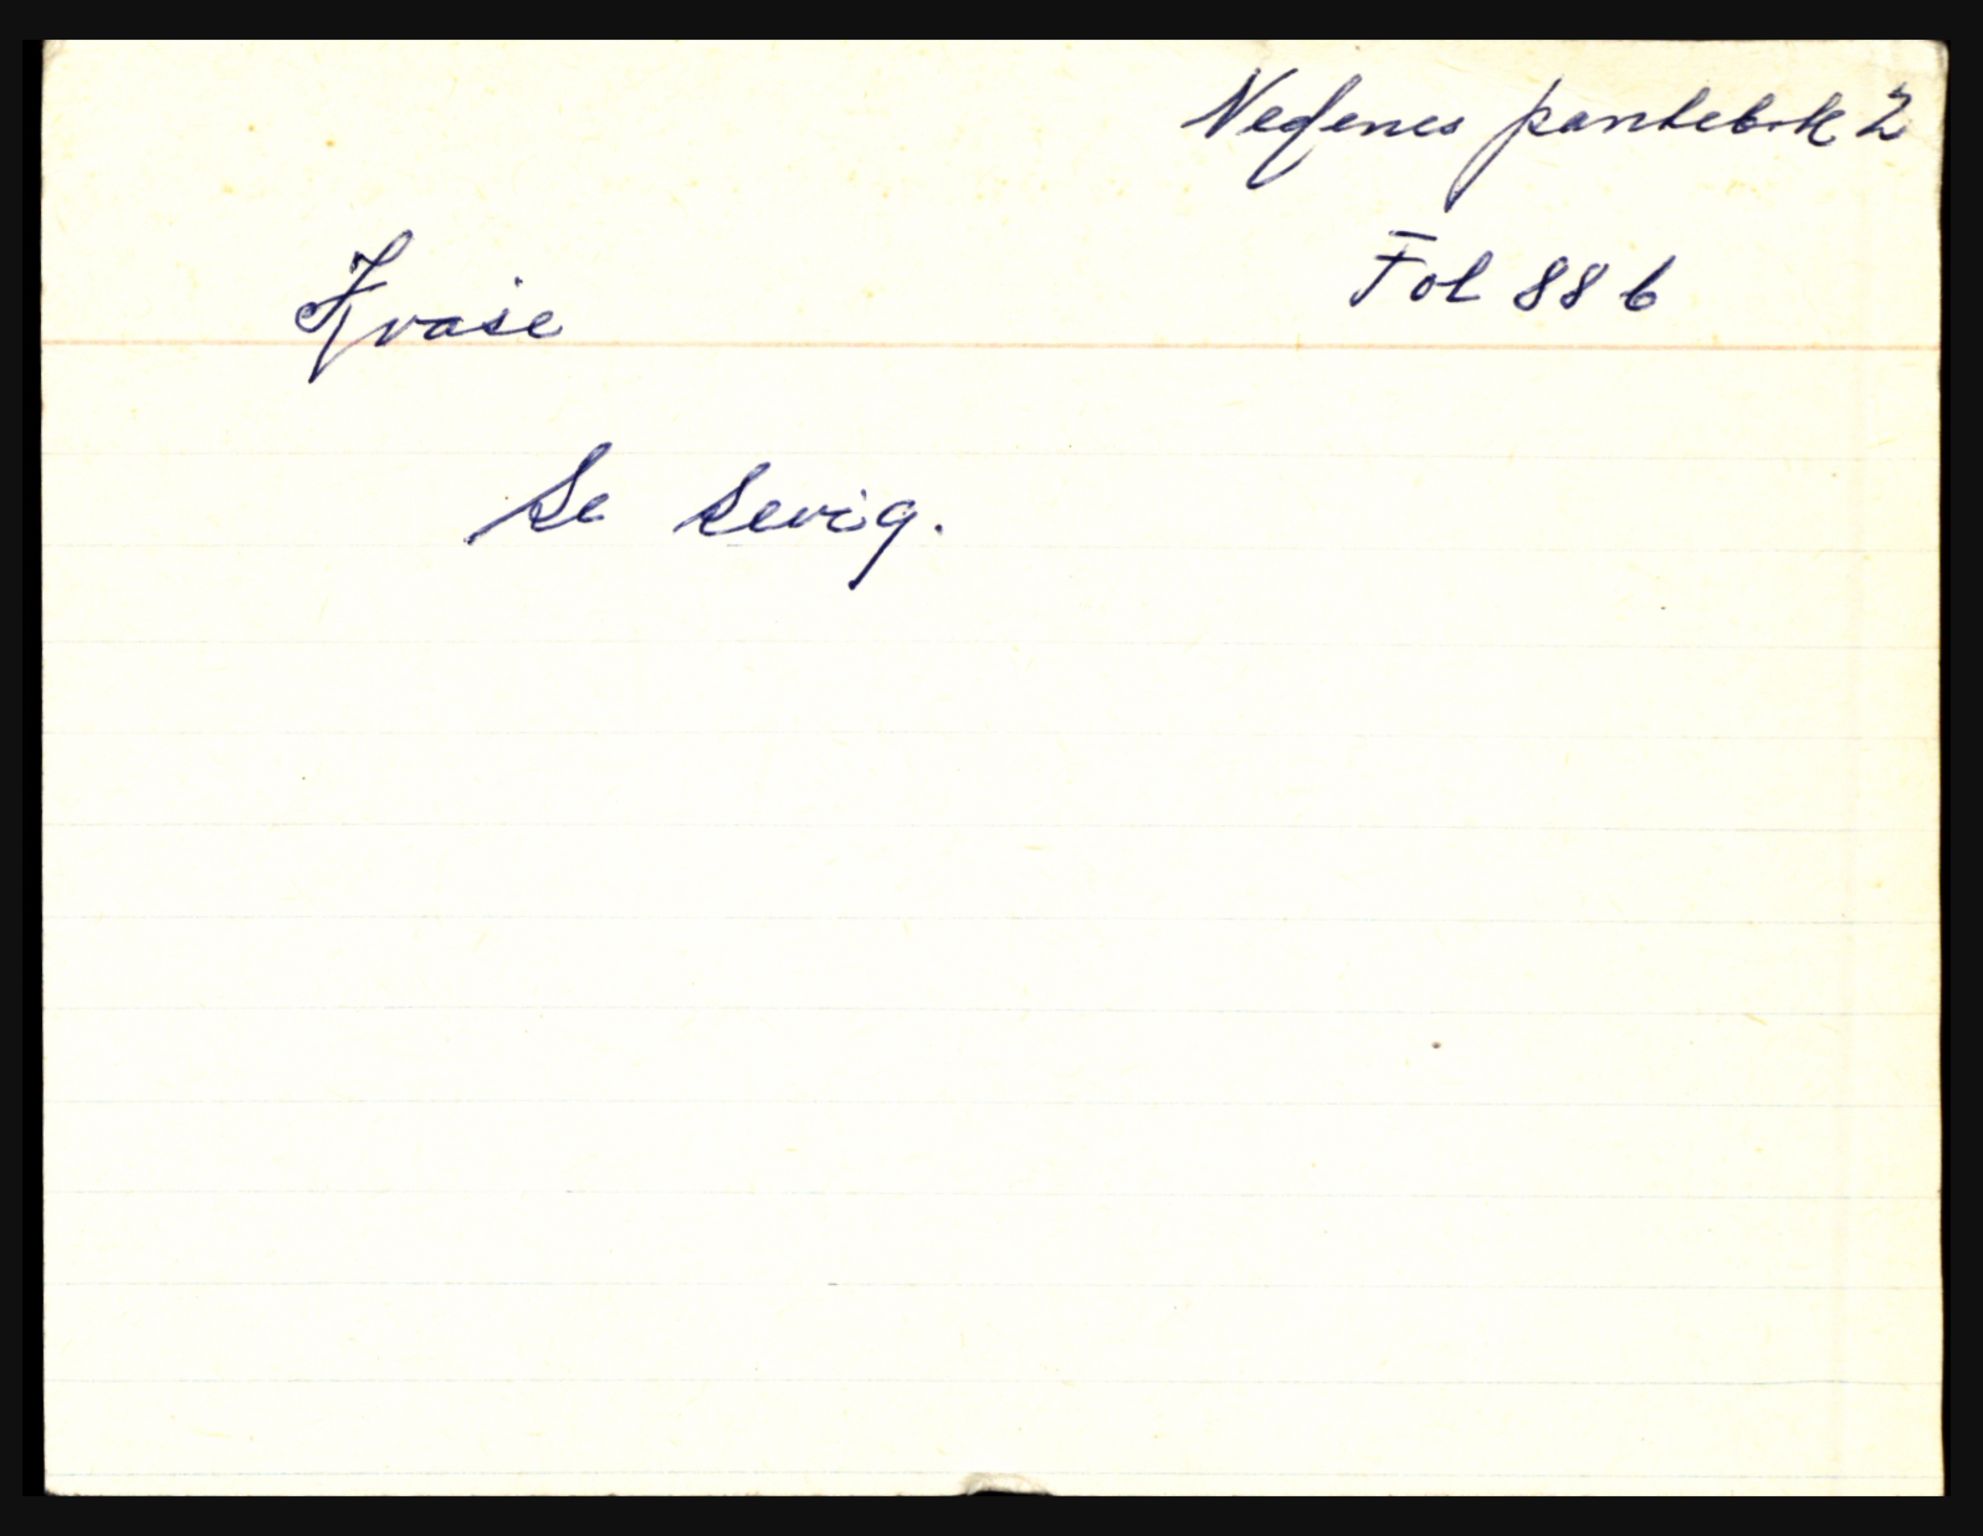 Nedenes pantebok 2
Fol 88 b
Se Sevig.